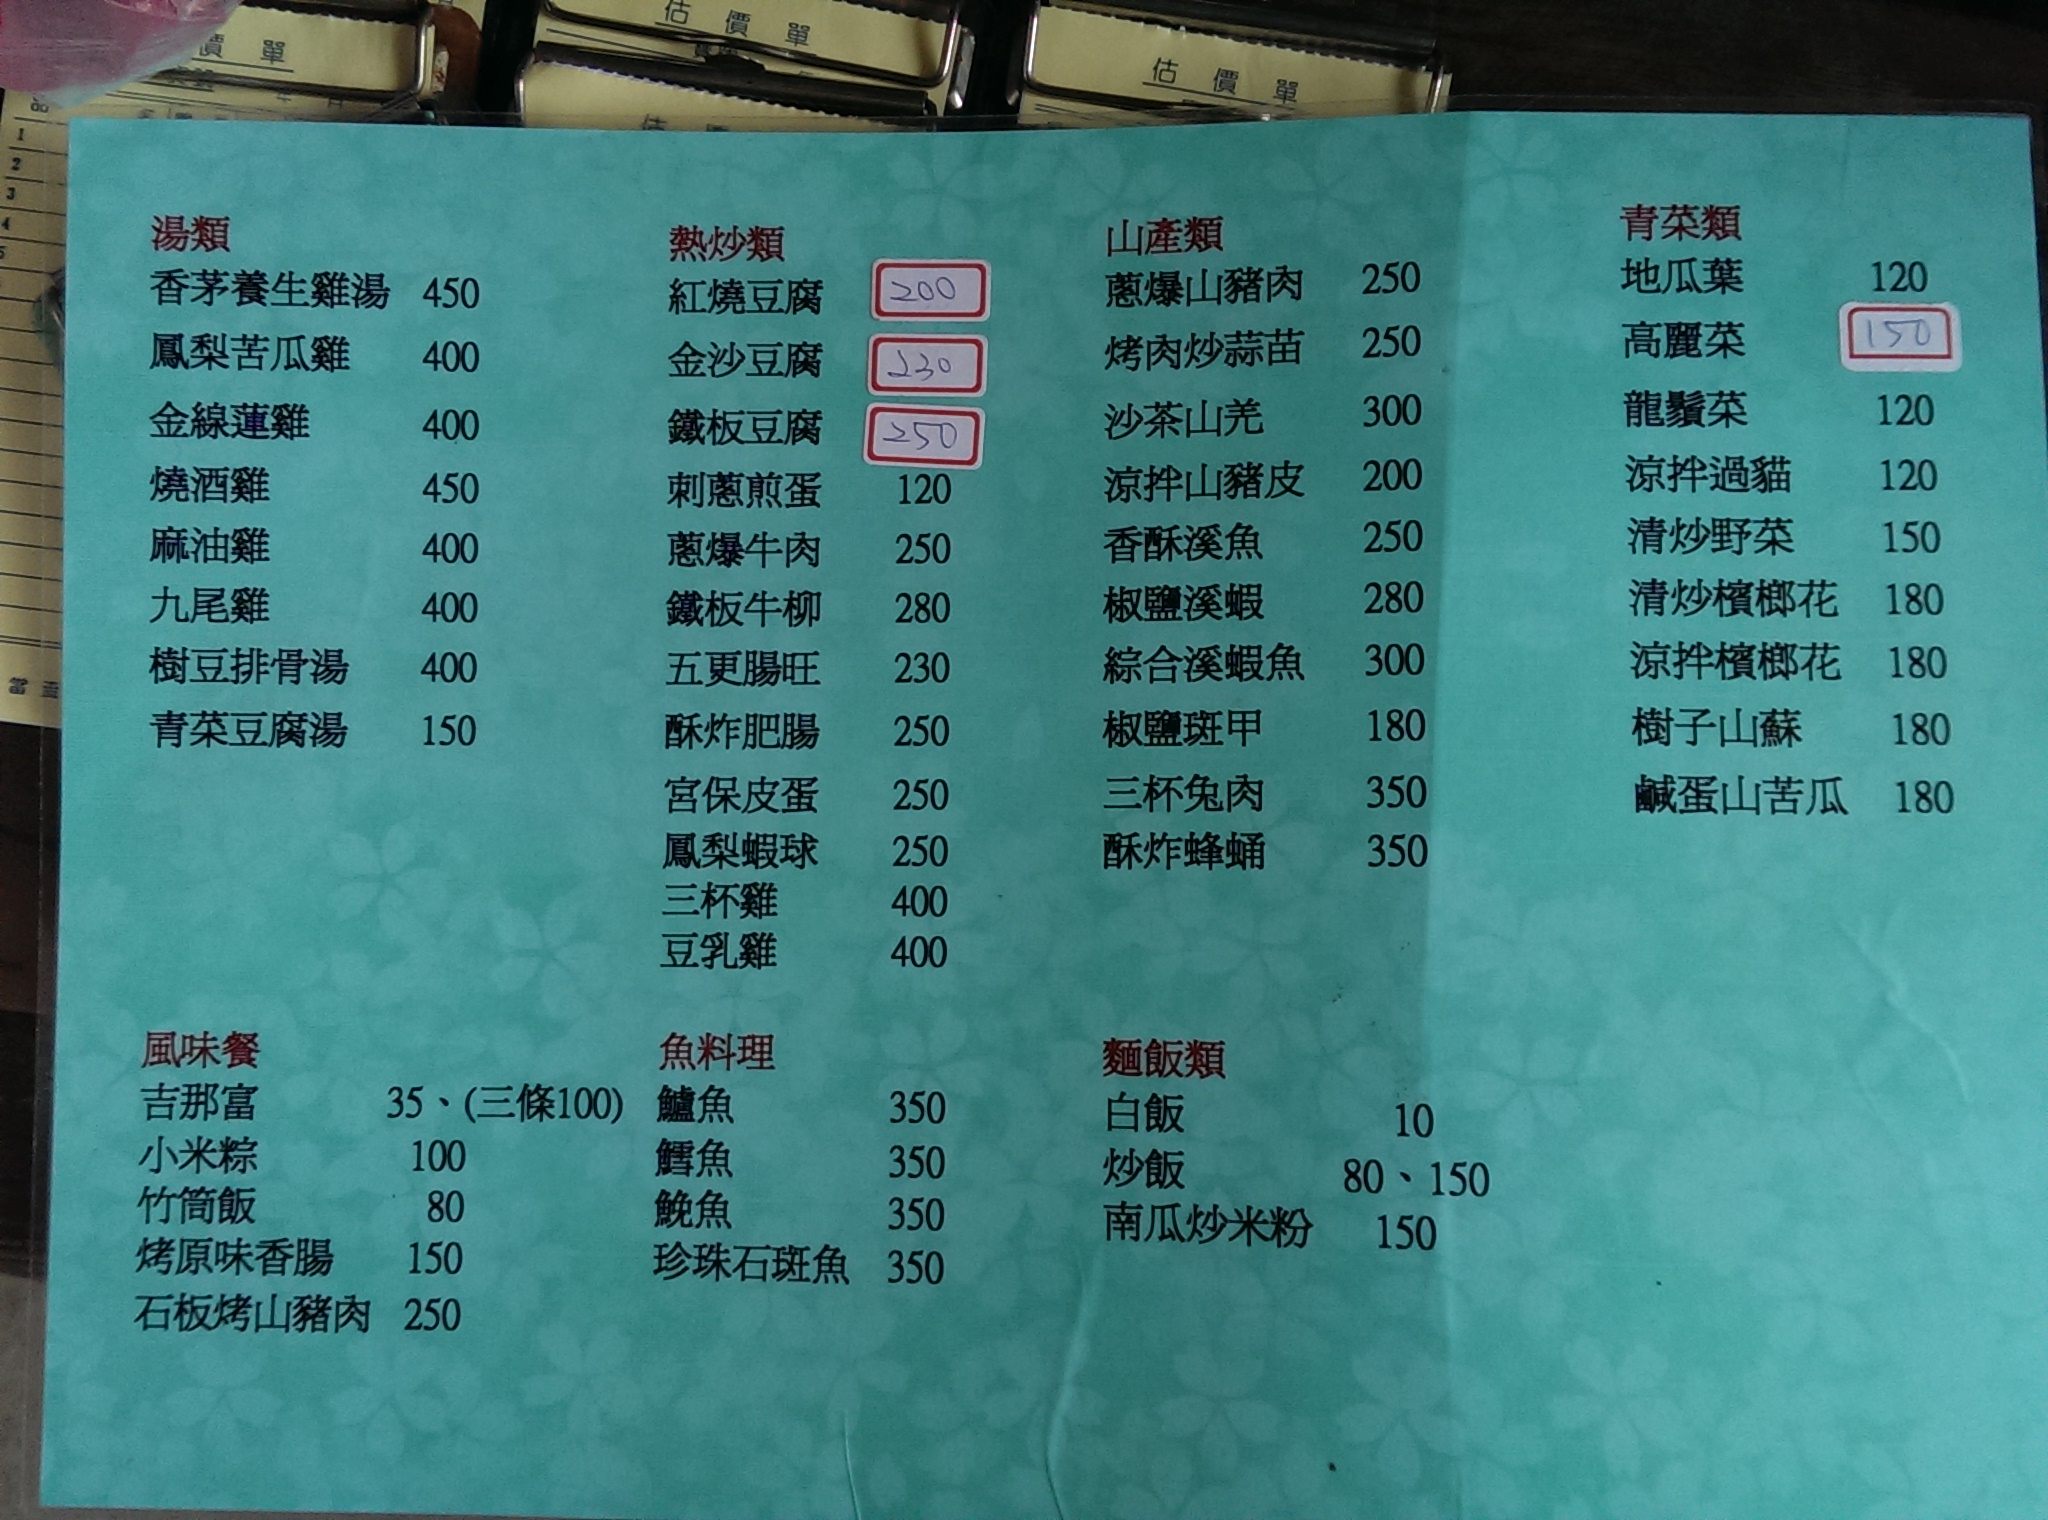 價單
估價單
估價單
估
1
2
3
4
5
湯類
香茅養生雞湯 450
鳳梨苦瓜雞 400
金線蓮雞 400
燒酒雞 450
麻油雞 400
九尾雞 400
樹豆排骨湯 400
青菜豆腐湯 150
熱炒類
紅燒豆腐 200
金沙豆腐 230
鐵板豆腐 250
刺蔥煎蛋 120
蔥爆牛肉 250
鐵板牛柳 280
五更腸旺 230
酥炸肥腸 250
宮保皮蛋 250
鳳梨蝦球 250
三杯雞 400
豆乳雞 400
山產類
蔥爆山豬肉 250
烤肉炒蒜苗 250
沙茶山羌 300
涼拌山豬皮 200
香酥溪魚 250
椒鹽溪蝦 280
綜合溪蝦魚 300
椒鹽斑甲 180
三杯兔肉 350
酥炸蜂蛹 350
青菜類
地瓜葉 120
高麗菜 150
龍鬚菜 120
涼拌過貓 120
清炒野菜 150
清炒檳榔花 180
涼拌檳榔花 180
樹子山蘇 180
鹹蛋山苦瓜 180
風味餐
吉那富 35、(三條100)
小米粽 100
竹筒飯 80
烤原味香腸 150
石板烤山豬肉 250
魚料理
鱸魚 350
鱈魚 350
鮸魚 350
珍珠石斑魚 350
麵飯類
白飯 10
炒飯 80、150
南瓜炒米粉 150